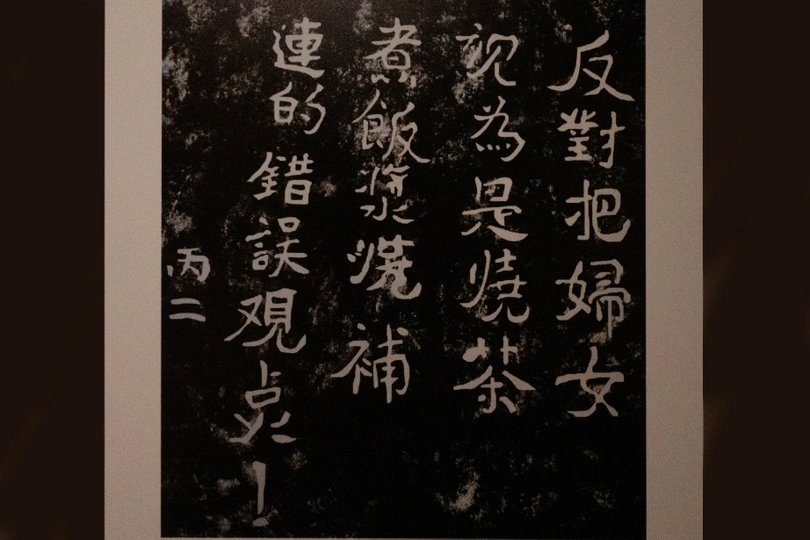 反對把婦女
視為是燒茶
煮飯漿燒補
連的錯誤观
点！
丙二